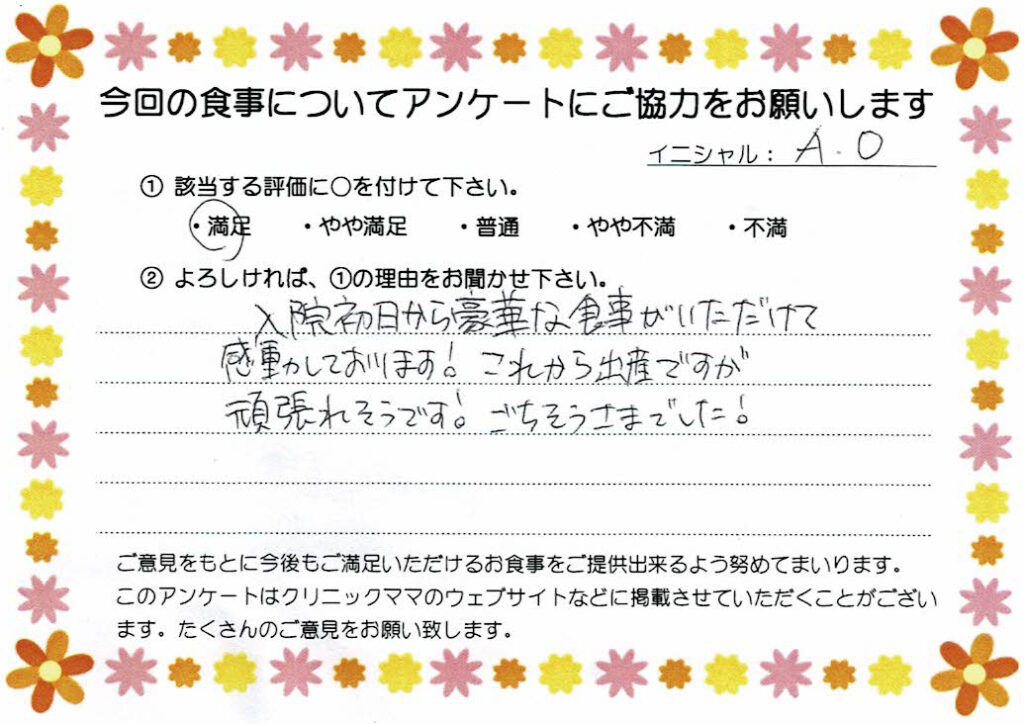 今回の食事についてアンケートにご協力をお願いします
イニシャル： A.O
① 該当する評価に○を付けて下さい。
・満足 ・やや満足 ・普通 ・やや不満 ・不満
② よろしければ、①の理由をお聞かせ下さい。
入院初日から豪華な食事がいただけて
感動しております！これから出産ですが
頑張れそうです！ごちそうさまでした！
ご意見をもとに今後もご満足いただけるお食事をご提供出来るよう努めてまいります。
このアンケートはクリニックママのウェブサイトなどに掲載させていただくことがござい
ます。たくさんのご意見をお願い致します。